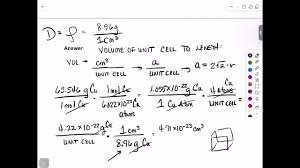 D = ρ = 8.96g / 1cm³
Answer:
VOLUME OF UNIT CELL TO LENGTH:
VOL → cm³ / UNIT CELL → a / UNIT CELL → a = 2√2 · r
63.546 g Cu / 1 mol Cu · 1 mol Cu / 6.022×10²³ Cu Atom · 4 Atoms / UNIT CELL
1.055×10⁻²² g Cu / 1 Cu Atom · 4 Cu Atoms / UNIT CELL
4.22×10⁻²² g Cu / UNIT CELL · 1 cm³ / 8.96 g Cu = 4.71×10⁻²³ cm³